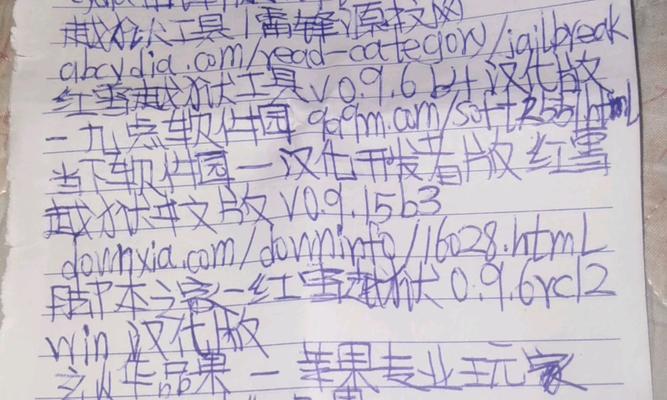 越狱工具|雷锋源技网
abcydia.com/read-category/jailbreak
红雪越狱工具v0.9.6b4汉化版
一九点软件园 9a9m.com/soft/255l.html
当下软件园一汉化开发者版红雪
越狱中文版v0.9.15b3
downxia.com/downinfo/16028.html
脚本之家-红雪越狱0.9.6rc12
win汉化版
苹果专业玩家